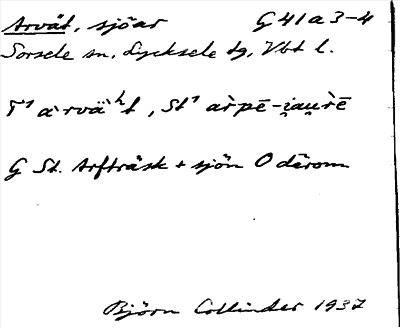 Arvät, sjöar G 41 a 3-4
Sorsele sn, Lycksele tg, Vbt l.
àrvä̀ʰt, St¹ àr̀pē-i̯au̯r̀ē
G St. Arfträsk + sjön O därom
Björn Collinder 1937